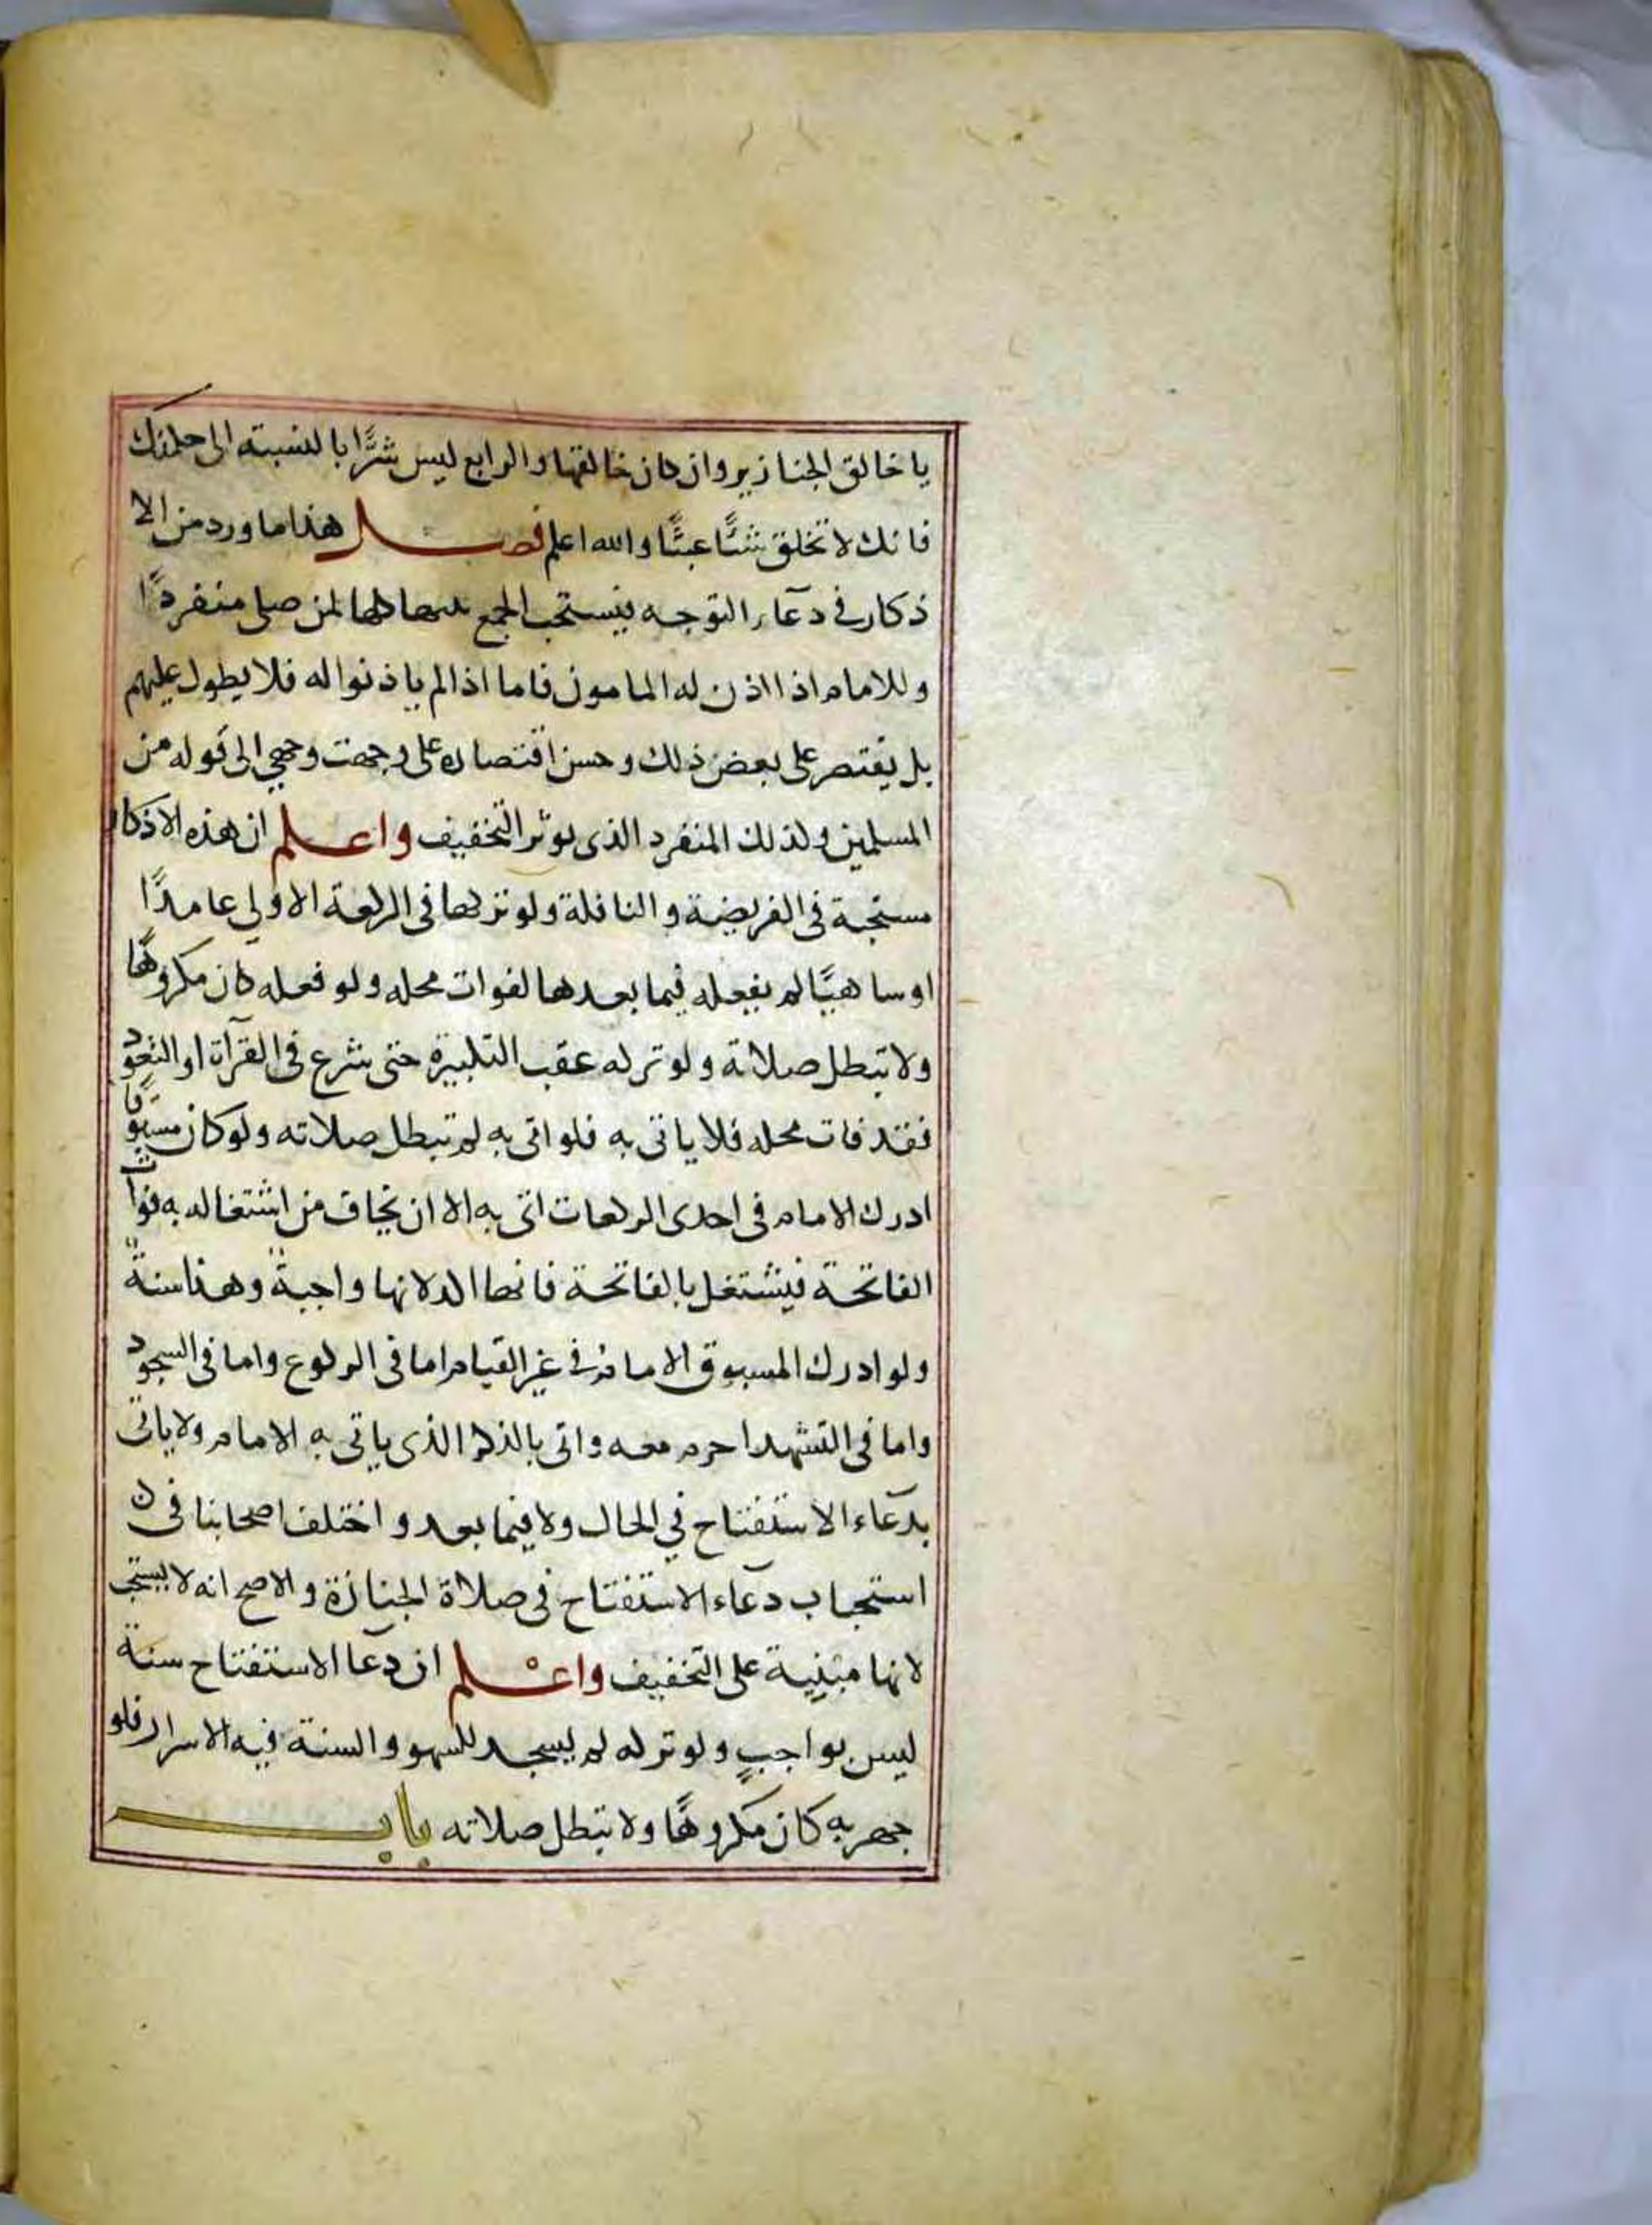 يا خالق الجنازير وان كان خالقها والرابع ليس شرًّا بالنسبته الى حكمتك
فانك لا تخلق شئًا عبثًا والله اعلم فصل هذا ما ورد من الا
ذكار في دعآء التوجه يستحب الجمع بينها كلها لمن صلى منفردًا
وللامام اذا اذن له المامون فاما اذا لم ياذنوا له فلا يطول عليهم
بل يقتصر على بعض ذلك وحسن اقتصاره على وجهت وجهي الى قوله من
المسلمين وكذلك المنفرد الذى يوثر التخفيف واعلم ان هذه الاذكار
مستحبة فى الفريضة والنافلة ولو تركها فى الركعة الاولى عامدًا
او ساهيًا لم يفعله فيما بعدها لفوات محله ولو فعله كان مكروهًا
ولا تبطل صلاتة ولو تركه عقب التكبيرة حتى شرع فى القرآة او التعوذ
فقد فات محله فلا ياتى به فلو اتى به لم تبطل صلاته ولو كان مسبوقًا
ادرك الامام فى احدى الركعات اتى به الا ان يخاف من اشتغاله به فوات
الفاتحة فيشتغل بالفاتحة فانها اكد لانها واجبةٌ وهذا سنةٌ
ولو ادرك المسبوق الامام في غير القيام اما فى الركوع واما فى السجود
واما فى التشهد احرم معه واتى بالذكر الذى ياتى به الامام ولا ياتى
بدعآء الاستفتاح في الحال ولا فيما بعد واختلف اصحابنا فى
استحباب دعآء الاستفتاح فى صلاة الجنازة والاصح انه لا يستحب
لانها مبنية على التخفيف واعلم ان دعا الاستفتاح سنة
ليس بواجبٍ ولو تركه لم يسجد للسهو والسنة فيه الاسرار فلو
جهر به كان مكروهًا ولا تبطل صلاته باب